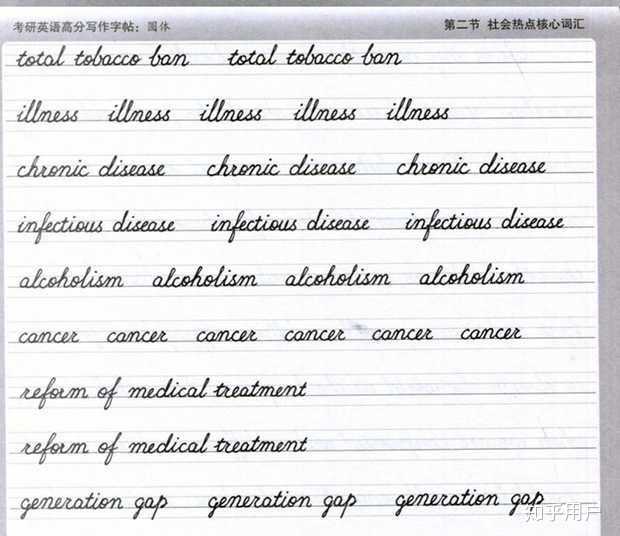 考研英语高分写作字帖：圆体 第二节 社会热点核心词汇
total tobacco ban total tobacco ban
illness illness illness illness illness
chronic disease chronic disease chronic disease
infectious disease infectious disease infectious disease
alcoholism alcoholism alcoholism alcoholism
cancer cancer cancer cancer cancer cancer
reform of medical treatment
reform of medical treatment
generation gap generation gap generation gap
知乎用户